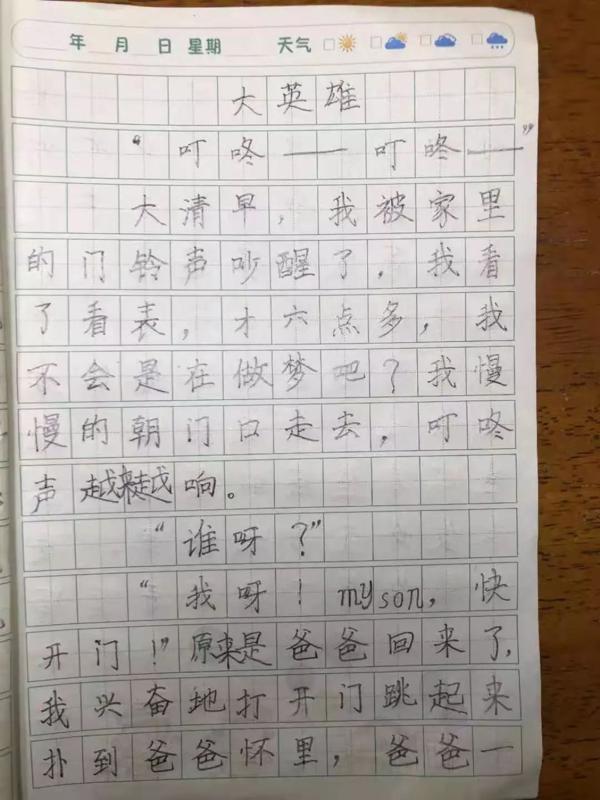 年 月 日 星期 天气
大英雄
“叮咚——叮咚——”
大清早，我被家里
的门铃声吵醒了．我看
了看表，才六点多，我
不会是在做梦吧？我慢
慢的朝门口走去，叮咚
声越来越响。
“谁呀？”
“我呀！my son，快
开门！”原来是爸爸回来了，
我兴奋地打开门跳起来
扑到爸爸怀里，爸爸一